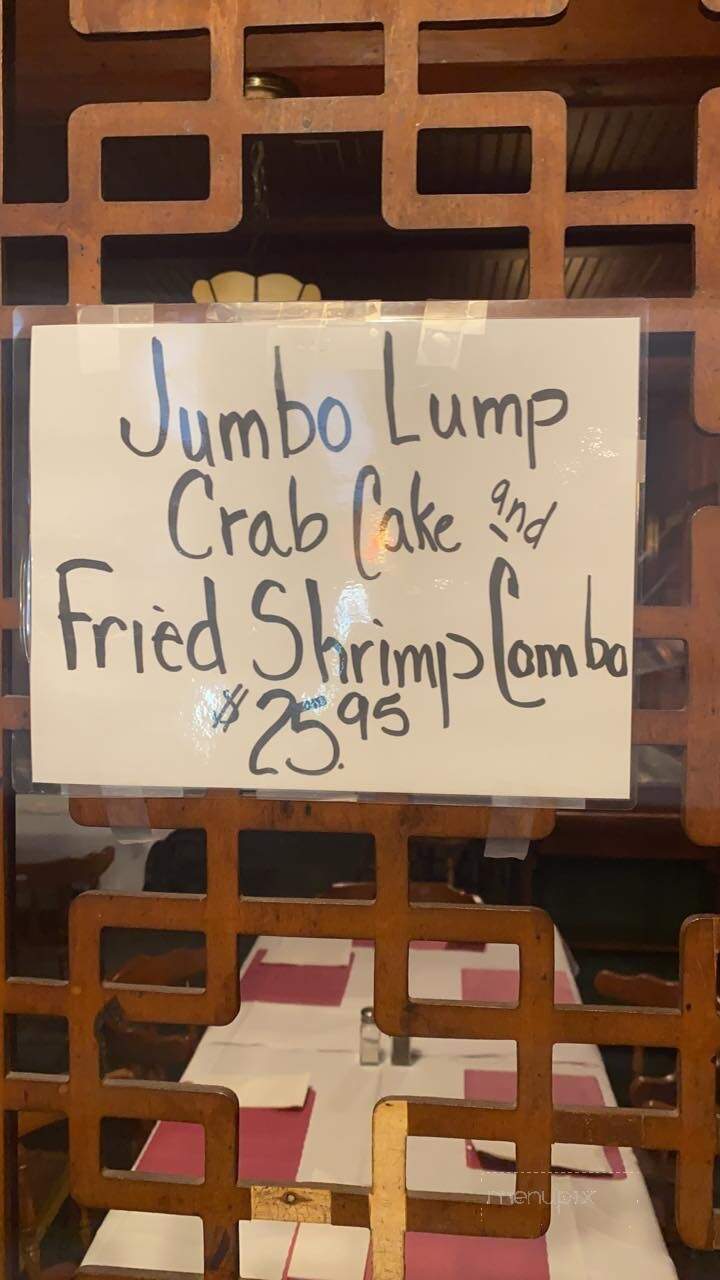 Jumbo Lump
Crab Cake and
Fried Shrimp Combo
$25.95
menupix